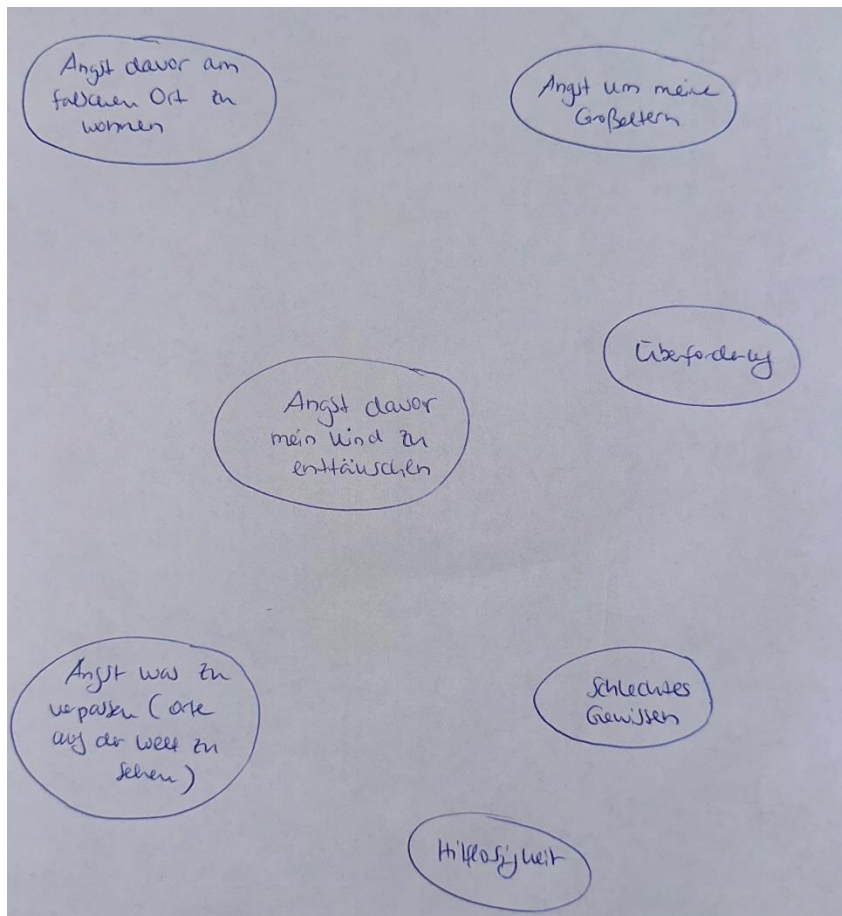 Angst davor am
falschen Ort zu
wohnen
Angst um meine
Großeltern
Überforderung
Angst davor
mein Kind zu
enttäuschen
Angst was zu
verpassen (Orte
auf der Welt zu
sehen)
Schlechtes
Gewissen
Hilflosigkeit